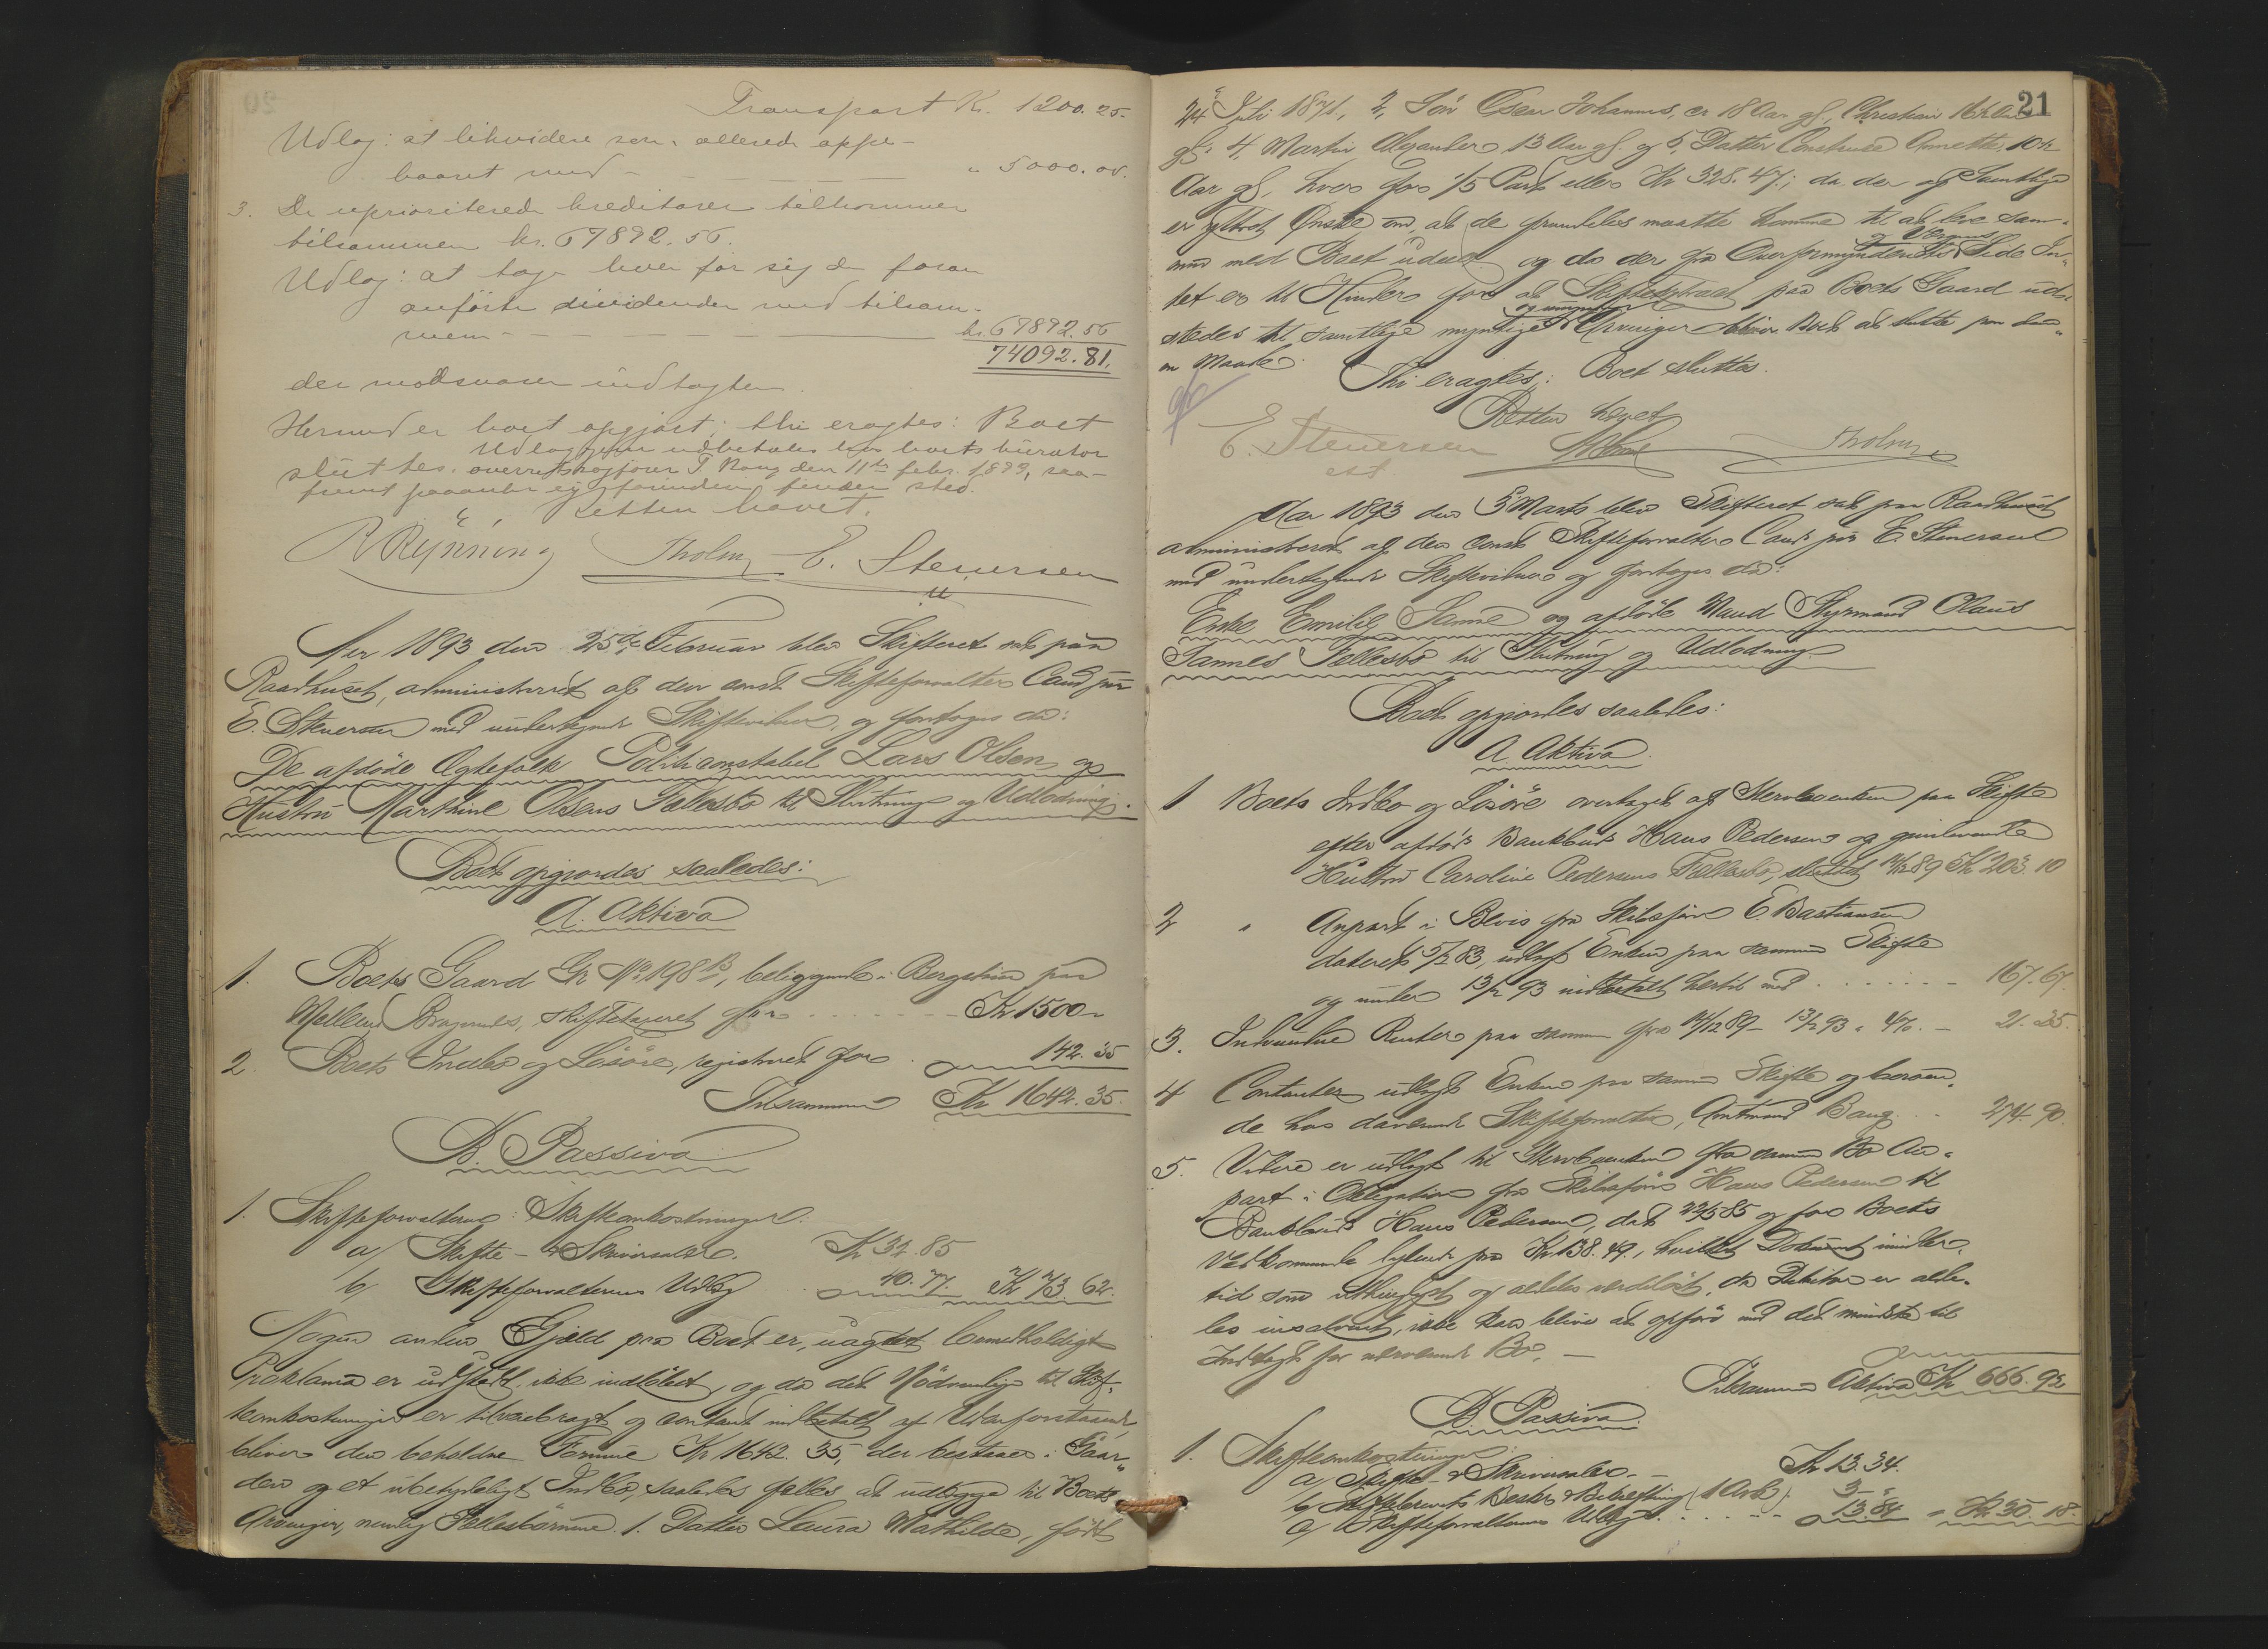 Transport K. 1200.25.
Udlæg: at likvidere som allerede oppe-
baaret med - " 5000.00.
3. De uprioriterede kreditorer tilkommer
tilsammen kr. 67892.56.
Udlæg: at tage hver for sig de foran
anførte dividender med tilsam-
men - kr. 67892.56
74092.81.
der modsvarer indtægten.
Hermed er boet opgjort; thi eragtes: Boet
Udlæggene udbetales hos boets kurator
sluttes. overretssagfører T. Bang den 11te febr. 1893, saa-
fremt paaanke ej forinden finder sted.
Retten hævet.
R Rynning Tholm E. Stenersen
Aar 1893 den 25de Februar blev Skifteret sat paa
Raadhuset, administreret af den const. Skifteforvalter Cand jur
E. Stenersen med undertegnede Skiftevidner, og foretoges da:
De afdøde Ægtefolk Politiconstabel Lars Olsen og
Hustru Marthine Olsens Fællesbo til Slutning og Udlodning.
Boet opgjordes saaledes:
A. Aktiva
1. Boets Gaard Gr No 198 B, beliggende i Bergstien paa
Mellem Bragernes, skiftetaxeret for - Kr 1500 -
2 Boets Indbo og Løsøre, registreret for 142.35
Tilsammen Kr 1642.35.
B. Passiva
1. Skifteforvalteren: Skifteomkostninger:
a/ Skifte- & Skriversalær. Kr 32.85
b/ Skifteforvalterens Udlæg 40.77. Kr 73.62.
Nogen anden Gjæld paa Boet er, uagtet
Proklama er udstedt, ikke indløbet, og da det Nødvendige til Skif-
teomkostninger er tilveiebragt og contant indbetalt af
bliver den beholdne Formue Kr 1642.35, der bestaaer i Gaar-
den og et ubetydeligt Indbo, saaledes fælles at udlægge til Boets
Arvinger, nemlig Fællesbørnene 1. Datter Laura Mathilde, født
21
24 Juli 1871, 2, Søn Oscar Johannes, er 18 Aar gl, Christian 16½ Aar
gl; 4, Martin Alexander 13 Aar gl og 5, Datter Constance Annette 10½
Aar gl, hver for 1/5 Part eller Kr 328.47.; da der af Samtlige
er yttret Ønske om, at de fremdeles maatte komme til at leve sam-
men med Boet udeelt og da der fra Overformynderiets og Værgens Side In-
tet er til Hinder for at Skifteextract paa Boets Gaard ud-
stedes til samtlige myndige og umyndige Arvinger bliver Boet at slutte paa den-
ne Maade.
Thi eragtes: Boet sluttes.
Retten hævet
E. Stenersen Tholm
cst
Aar 1893 den 3 Marts blev Skifteret sat paa Raadhuset
administreret af den const Skifteforvalter Cand jur E. Stenersen
med undertegnede Skiftevidner og foretoges da:
Enke Emilie Sanne og afdøde Mand Styrmand Olaus
Sannes Fællesbo til Slutning og Udlodning.
Boet opgjordes saaledes:
A. Aktiva.
1 Boets Indbo og Løsøre overtaget af Stervboenken paa Skifte
efter afdøde Bankbud Hans Pedersens og gjenlevende
Hustru Caroline Pedersens Fællesbo, sluttet 14/12 89 Kr 203.10
2 " Anpart i Bevis fra Skibsfører E. Bastiansen
dateret 5/2 83, udlagt Enken paa samme Skifte
og under 13/2 93 indbetalt hertil med 167.67.
3. Indvundne Renter paa samme fra 14/12 89 - 13/2 93 a 4% - 21.35.
4 Contanter udlagt Enken paa samme Skifte og beroen-
de hos daværende Skifteforvalter, Amtmand Bang - 274.90.
5. Videre er udlagt til Stervboenken fra samme Bo An-
part i Obligation fra Skibsfører Hans Pedersen til
Bankbud Hans Pedersen, dat 22/5 85 og for Boets
Vedkommende lydende paa Kr 138.49., hvilket Dokument imidler-
tid som uthinglyst og aldeles værdiløst, da Debitor er alde-
les insolvent, ikke kan blive at opføre med det mindste til
Indtægt for nærværende Bo. -
Tilsammen Aktiva Kr 666.92
B. Passiva.
1. Skifteomkostninger:
a/ Skifte- & Skriversalær - Kr 13.34.
b/ Skiftebrevets Beskr & Bekræftning (1 Ark) 3 -
c/ Skifteforvalterens Udlæg 13.84 = Kr 30.18.